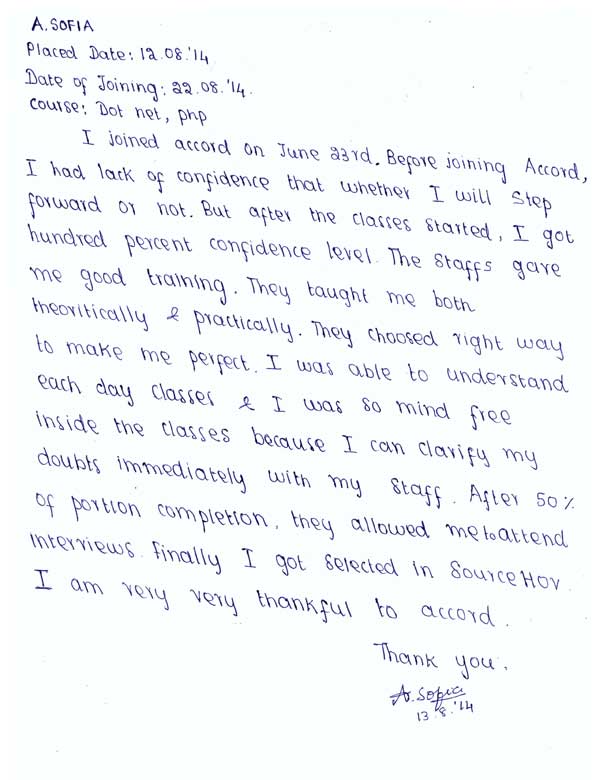 A. SOFIA
Placed Date: 12.08.'14
Date of Joining: 22.08.'14.
Course: Dot net, php
I joined accord on June 23rd. Before joining Accord,
I had lack of confidence that whether I will step
forward or not. But after the classes started, I got
hundred percent confidence level. The staffs gave
me good training. They taught me both
theoritically & practically. They choosed right way
to make me perfect. I was able to understand
each day classes & I was so mind free
inside the classes because I can clarify my
doubts immediately with my staff. After 50%
of portion completion, they allowed me to attend
interviews. Finally I got selected in SourceHOV.
I am very very thankful to accord.
Thank you.
A. Sofia
13.8.'14